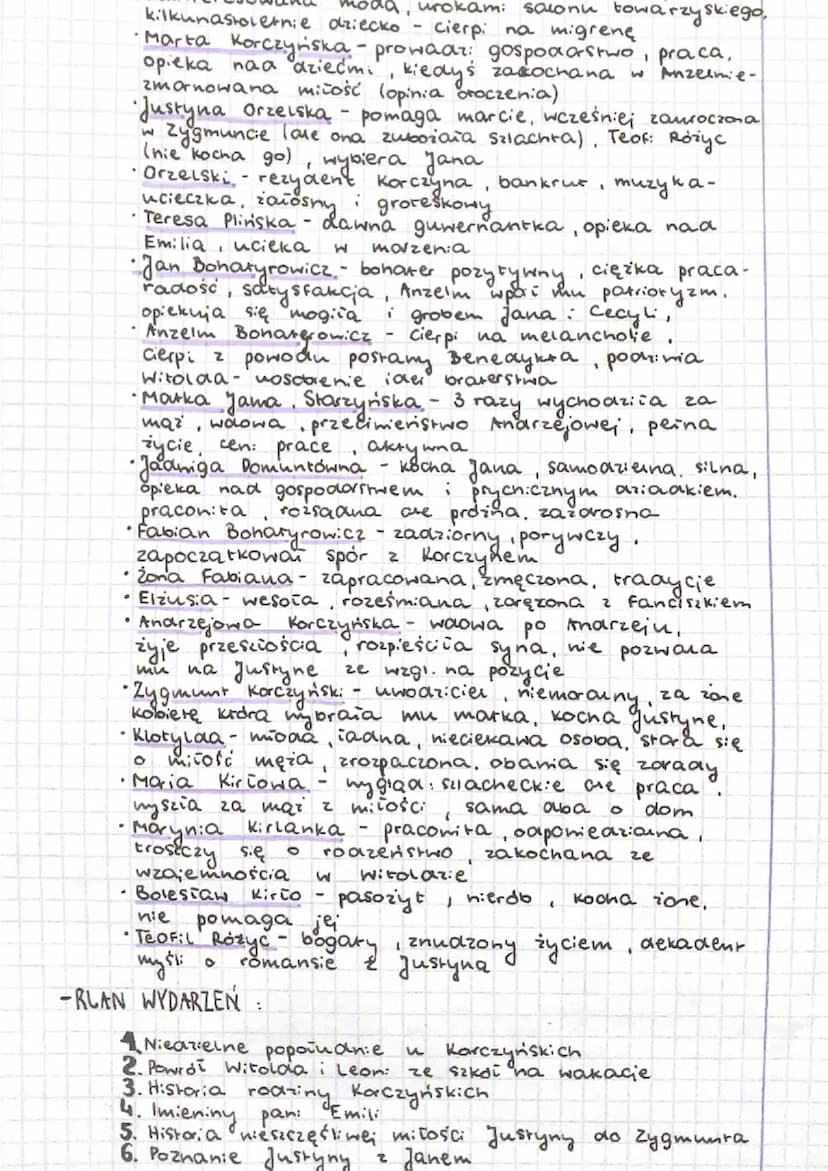 moda, urokami salonu towarzyskiego,
kilkunastoletnie dziecko - cierpi na migrenę
· Marta Korczyńska - prowadzi gospodarstwo, praca,
opieka nad dziećmi, kiedyś zakochana w Anzelmie-
zmarnowana miłość (opinia otoczenia)
· Justyna Orzelska - pomaga marcie, wcześniej zauroczona
w Zygmuncie (ale ona zubożała szlachta), Teofil Różyc
(nie kocha go), wybiera Jana
· Orzelski - rezydent Korczyna, bankrut, muzyka-
ucieczka, żałosny i groteskowy
· Teresa Plińska - dawna guwernantka, opieka nad
Emilią, ucieka w marzenia
· Jan Bohatyrowicz - bohater pozytywny, ciężka praca-
radość, satysfakcja, Anzelm wpoił mu patriotyzm.
opiekują się mogiłą i grobem Jana i Cecylii,
· Anzelm Bohaterowicz - cierpi na melancholie,
cierpi z powodu postawy Benedykta, podziwia
Witolda - uosobienie idei braterstwa
· Matka Jana, Starzyńska - 3 razy wychodziła za
mąż, wdowa, przeciwieństwo Andrzejowej, pełna
życie, ceni prace, aktywna
· Jadwiga Domuntówna - kocha Jana, samodzielna, silna,
opieka nad gospodarstwem i psychicznym dziadkiem.
pracowita, rozsądna ale próżna, zazdrosna
· Fabian Bohatyrowicz - zadziorny, porywczy,
zapoczątkował spór z Korczynem
· Żona Fabiana - zapracowana, zmęczona, tradycje
· Elżusia - wesoła, roześmiana, zaręzona z Fanciszkiem
· Andrzejowa Korczyńska - wdowa po Andrzeju,
żyje przeszłością, rozpieściła syna, nie pozwala
mu na Justyne ze wzgl. na pozycje
· Zygmunt Korczyński - uwodziciel, niemoralny, za żone
kobietę którą wybrała mu matka, kocha Justyne,
· Klotylda - młoda, ładna, nieciekawa osoba, stara się
o miłość męża, zrozpaczona, obawia się zdrady
· Maja Kirłowa - wygląd: szlacheckie ale praca,
wyszła za mąż z miłości, sama dba o dom
· Marynia Kirlanka - pracowita, odpowiedzialna,
troszczy się o rodzeństwo, zakochana ze
wzajemnością w Witoldzie
· Bolesław Kirło - pasożyt, nierób, kocha żone,
nie pomaga jej
· Teofil Różyc - bogaty, znudzony życiem, dekadent
myśli o romansie z Justyną
- PLAN WYDARZEŃ :
1. Niedzielne popołudnie u Korczyńskich
2. Powrót Witolda i Leoni ze szkół na wakacje
3. Historia rodziny Korczyńskich
4. Imieniny pani Emili
5. Historia nieszczęśliwej miłości Justyny do Zygmunta
6. Poznanie Justyny z Janem